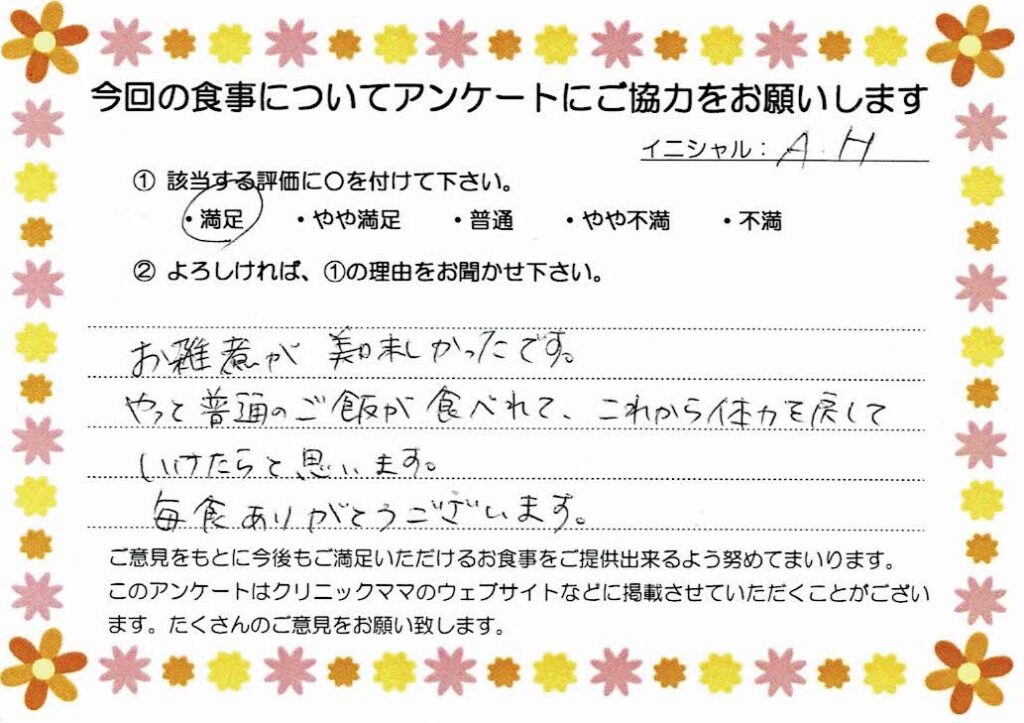 今回の食事についてアンケートにご協力をお願いします
イニシャル：A.H
① 該当する評価に○を付けて下さい。
・満足 ・やや満足 ・普通 ・やや不満 ・不満
② よろしければ、①の理由をお聞かせ下さい。
お雑煮が 美味しかったです。
やっと普通のご飯が食べれて、これから体力を戻して
いけたらと思います。
毎食ありがとうございます。
ご意見をもとに今後もご満足いただけるお食事をご提供出来るよう努めてまいります。
このアンケートはクリニックママのウェブサイトなどに掲載させていただくことがござい
ます。たくさんのご意見をお願い致します。